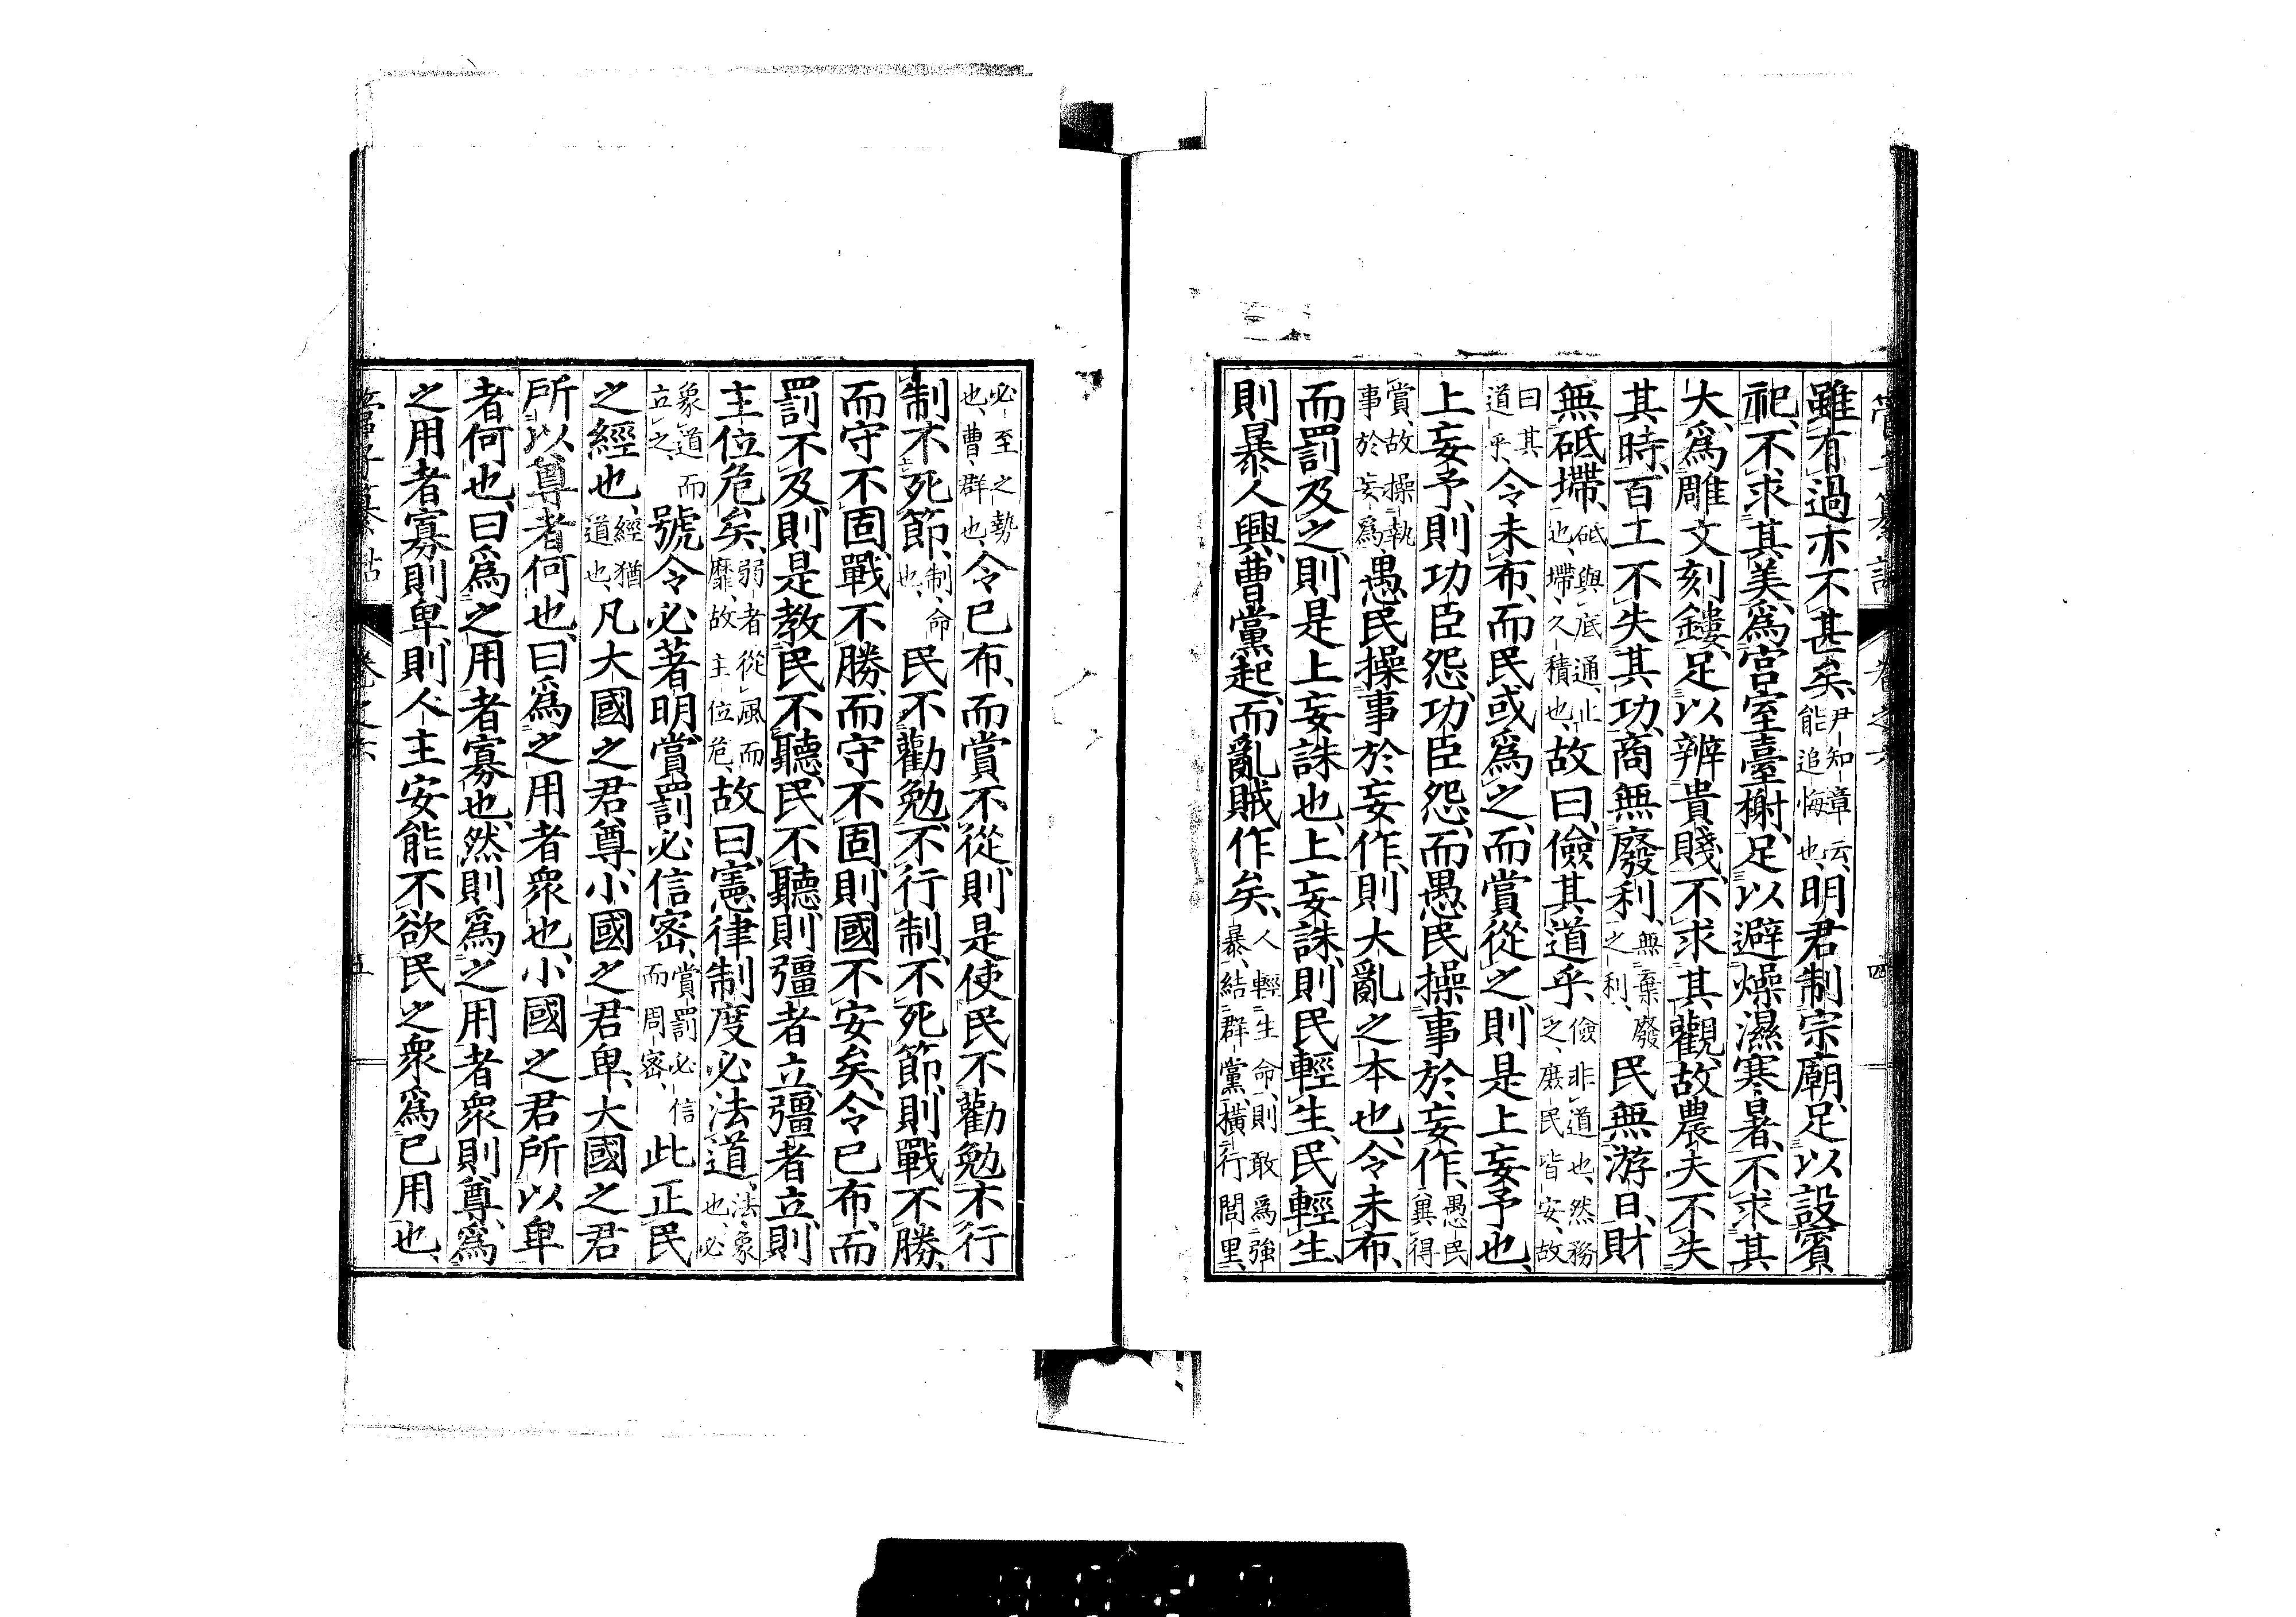 雖有過亦不甚矣、尹知章云、能追悔也、明君制宗廟、足以設賓
祀、不求其美、爲宮室臺榭、足以避燥濕寒暑、不求其
大、爲雕文刻鏤、足以辨貴賤、不求其觀、故農夫不失
其時、百工不失其功、商無廢利、無棄廢之利、民無游日、財
無砥墆、砥與底通、止也、墆、久積也、故曰、儉其道乎、儉非道也、然務之、庶民皆安、故
曰其道乎、令未布、而民或爲之、而賞從之、則是上妄予也、
上妄予、則功臣怨、功臣怨、而愚民操事於妄作、愚民冀得
賞、故操執事於妄爲、愚民操事於妄作、則大亂之本也、令未布、
而罰及之、則是上妄誅也、上妄誅、則民輕生、民輕生、
則暴人興、曹黨起、而亂賊作矣、人輕生命、則敢爲強暴、結群黨、橫行閭里、
必至之勢也、曹、群也、令已布、而賞不從、則是使民不勸勉、不行
制、不死節、制、命也、民不勸勉、不行制、不死節、則戰不勝、
而守不固、戰不勝、而守不固、則國不安矣、令已布、而
罰不及、則是教民不聽、民不聽、則彊者立、彊者立、則
主位危矣、弱者從風而靡、故主位危、故曰、憲律制度必法道、法、象也、必
象道而立之、號令必著明、賞罰必信密、賞罰必信而周密、此正民
之經也、經猶道也、凡大國之君尊、小國之君卑、大國之君
所以尊者何也、曰、爲之用者衆也、小國之君所以卑
者何也、曰、爲之用者寡也、然則爲之用者衆則尊、爲
之用者寡則卑、則人主安能不欲民之衆爲已用也、